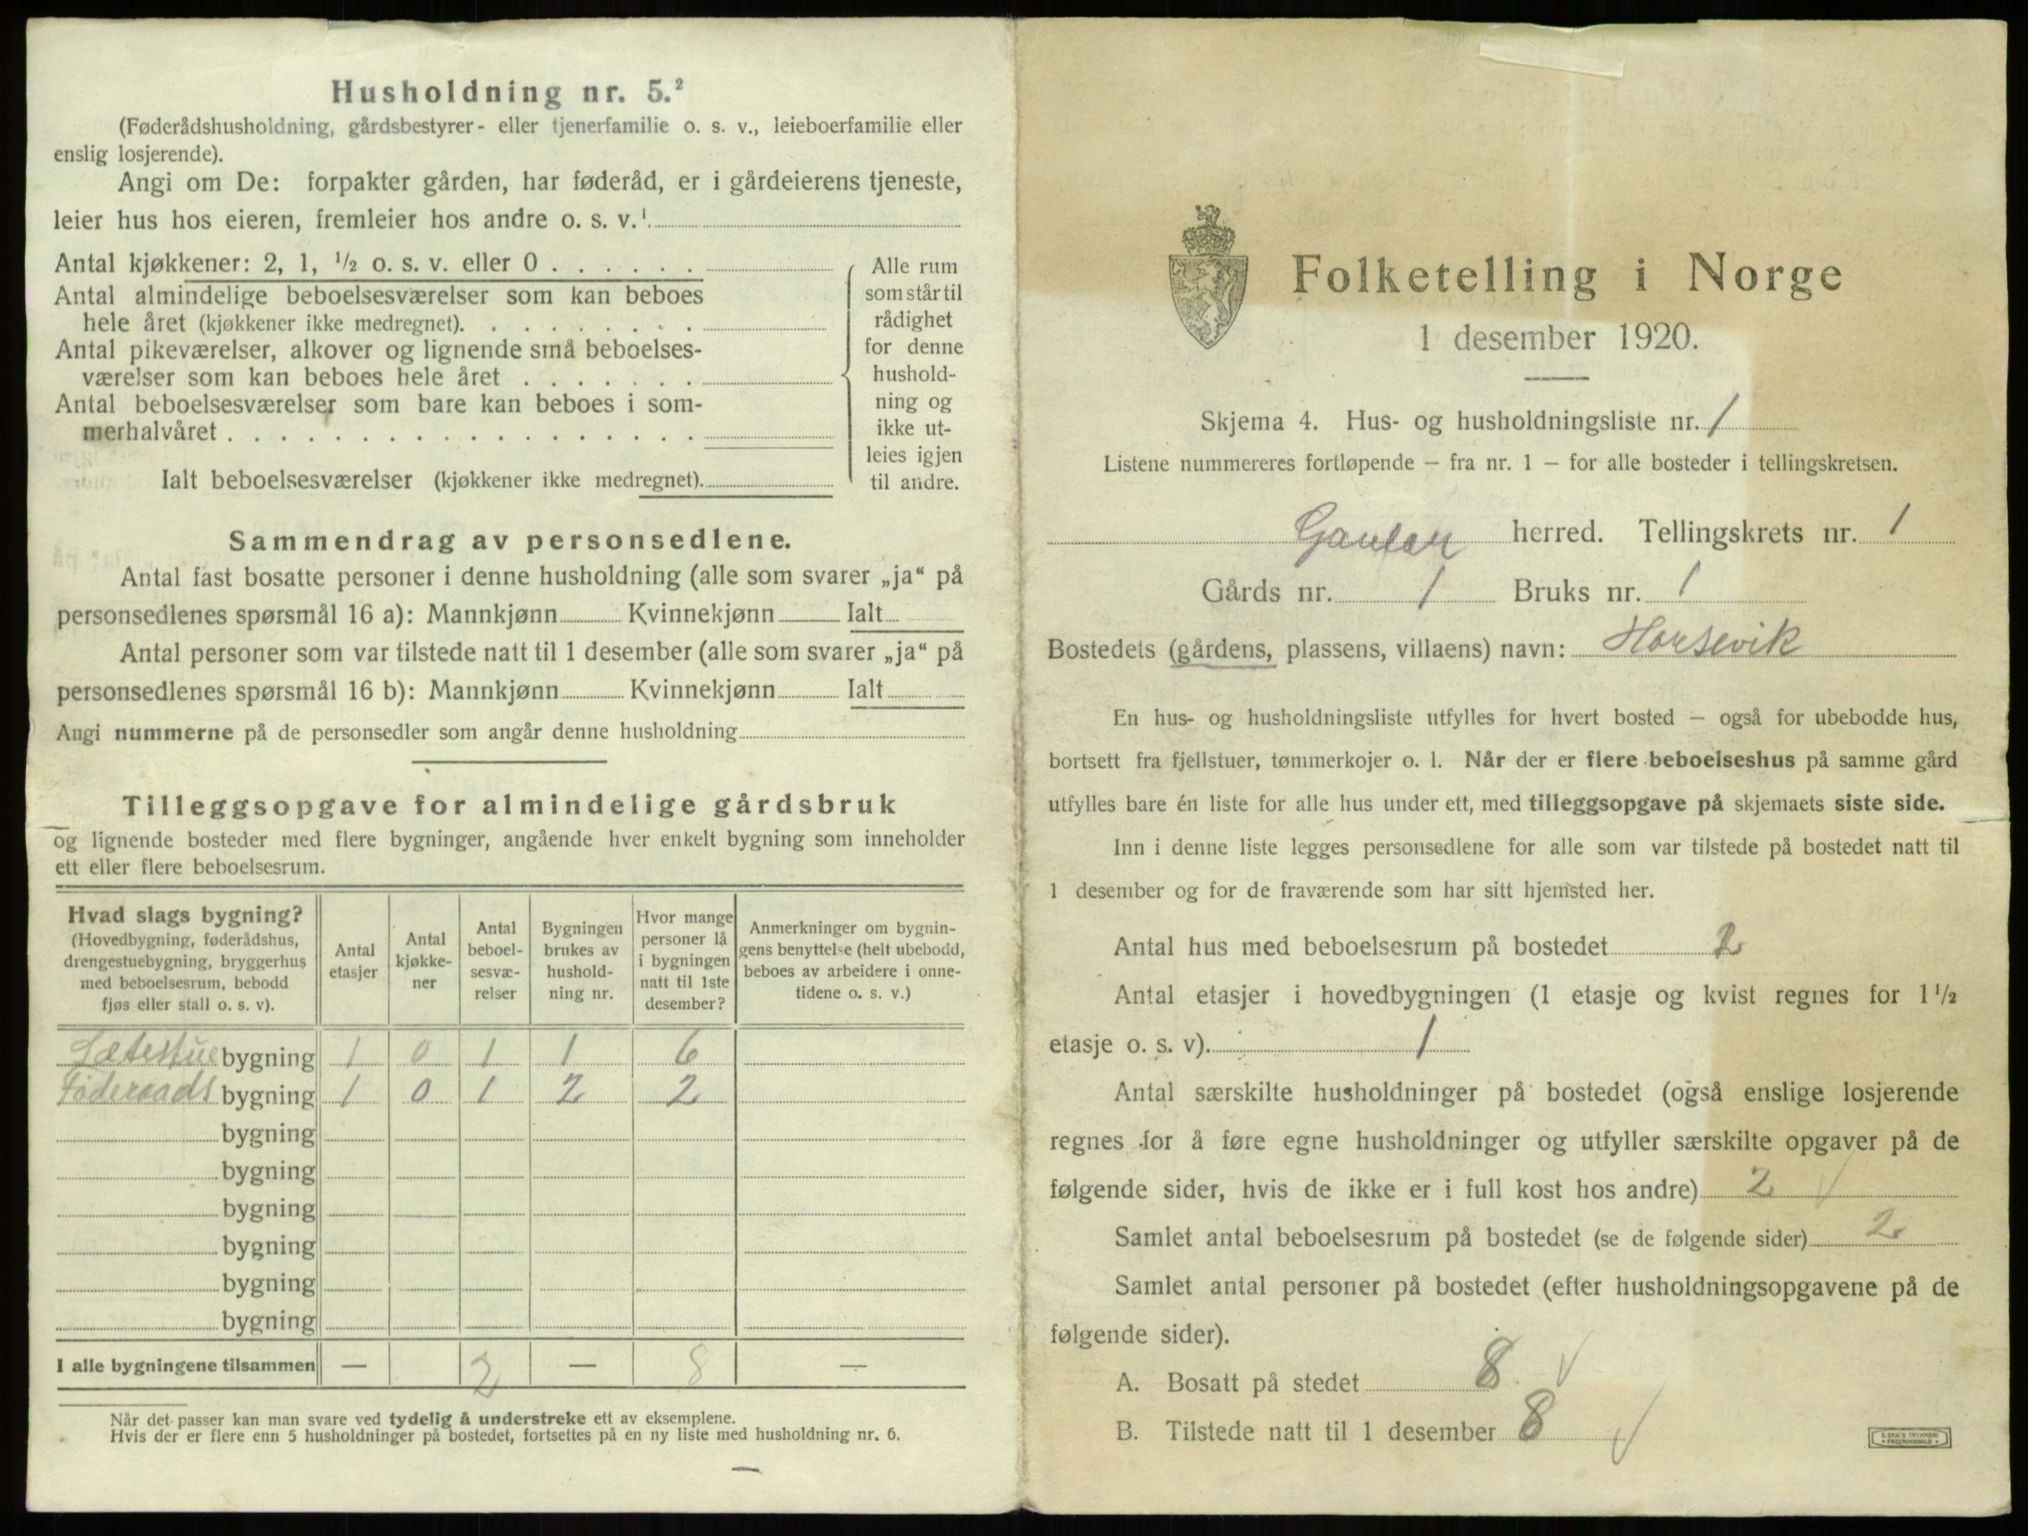 Husholdning nr. 5.²
(Føderådshusholdning, gårdsbestyrer- eller tjenerfamilie o. s. v., leieboerfamilie eller
enslig losjerende).
Angi om De: forpakter gården, har føderåd, er i gårdeierens tjeneste,
leier hus hos eieren, fremleier hos andre o. s. v.¹
Antal kjøkkener: 2, 1, ½ o. s. v. eller 0
Antal almindelige beboelsesværelser som kan beboes
hele året (kjøkkener ikke medregnet).
Antal pikeværelser, alkover og lignende små beboelses-
værelser som kan beboes hele året
Antal beboelsesværelser som bare kan beboes i som-
merhalvåret
Ialt beboelsesværelser (kjøkkener ikke medregnet).
Alle rum
som står til
rådighet
for denne
hushold-
ning og
ikke ut-
leies igjen
til andre.
Sammendrag av personsedlene.
Antal fast bosatte personer i denne husholdning (alle som svarer „ja“ på
personsedlenes spørsmål 16 a): Mannkjønn Kvinnekjønn Ialt
Antal personer som var tilstede natt til 1 desember (alle som svarer „ja“ på
personsedlenes spørsmål 16 b): Mannkjønn Kvinnekjønn Ialt
Angi nummerne på de personsedler som angår denne husholdning
Tilleggsopgave for almindelige gårdsbruk
og lignende bosteder med flere bygninger, angående hver enkelt bygning som inneholder
ett eller flere beboelsesrum.
Hvad slags bygning?
(Hovedbygning, føderådshus,
drengestuebygning, bryggerhus
med beboelsesrum, bebodd
fjøs eller stall o. s. v).
Antal
etasjer
Antal
kjøkke-
ner
Antal
beboel-
sesvæ-
relser
Bygningen
brukes av
hushold-
ning nr.
Hvor mange
personer lå
i bygningen
natt til 1ste
desember?
Anmerkninger om bygnin-
gens benyttelse (helt ubebodd,
beboes av arbeidere i onne-
tidene o. s. v.)
Sætestue bygning 1 0 1 1 6
Føderaads bygning 1 0 1 2 2
bygning
bygning
bygning
bygning
bygning
bygning
I alle bygningene tilsammen — 2 — 8 —
Når det passer kan man svare ved tydelig å understreke ett av eksemplene.
Hvis der er flere enn 5 husholdninger på bostedet, fortsettes på en ny liste med husholdning nr. 6.
Folketelling i Norge
1 desember 1920.
Skjema 4. Hus- og husholdningsliste nr. 1
Listene nummereres fortløpende – fra nr. 1 – for alle bosteder i tellingskretsen.
Gaular herred. Tellingskrets nr. 1
Gårds nr. 1 Bruks nr. 1
Bostedets (gårdens, plassens, villaens) navn: Horsevik
En hus- og husholdningsliste utfylles for hvert bosted – også for ubebodde hus,
bortsett fra fjellstuer, tømmerkojer o. l. Når der er flere beboelseshus på samme gård
utfylles bare én liste for alle hus under ett, med tilleggsopgave på skjemaets siste side.
Inn i denne liste legges personsedlene for alle som var tilstede på bostedet natt til
1 desember og for de fraværende som har sitt hjemsted her.
Antal hus med beboelsesrum på bostedet 2
Antal etasjer i hovedbygningen (1 etasje og kvist regnes for 1½
etasje o. s. v). 1
Antal særskilte husholdninger på bostedet (også enslige losjerende
regnes for å føre egne husholdninger og utfyller særskilte opgaver på de
følgende sider, hvis de ikke er i full kost hos andre) 2
Samlet antal beboelsesrum på bostedet (se de følgende sider) 2
Samlet antal personer på bostedet (efter husholdningsopgavene på de
følgende sider).
A. Bosatt på stedet 8
B. Tilstede natt til 1 desember 8